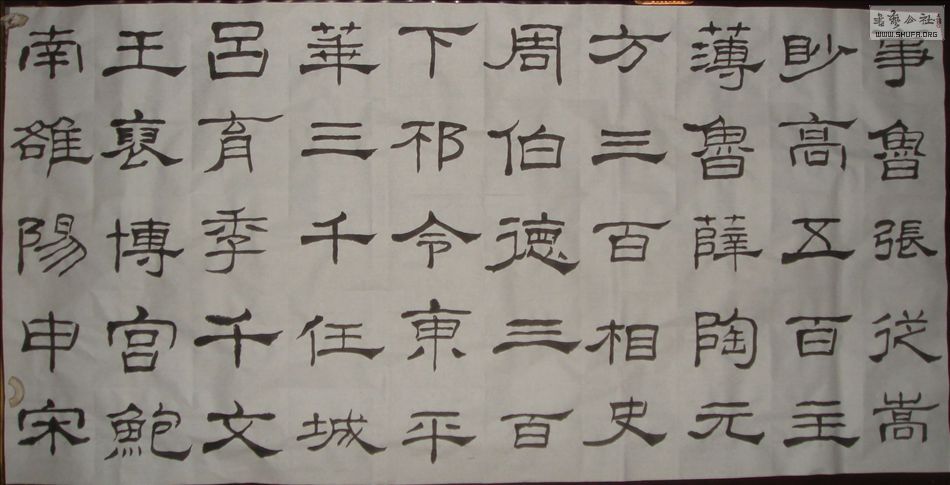 事魯張從嵩
眇高五百主
薄魯薛陶元
方三百相史
周伯德三百
下邳令東平
華三千任城
呂育季千文
王褒博宮鮑
南雒陽申宋
WWW.SHUFA.ORG